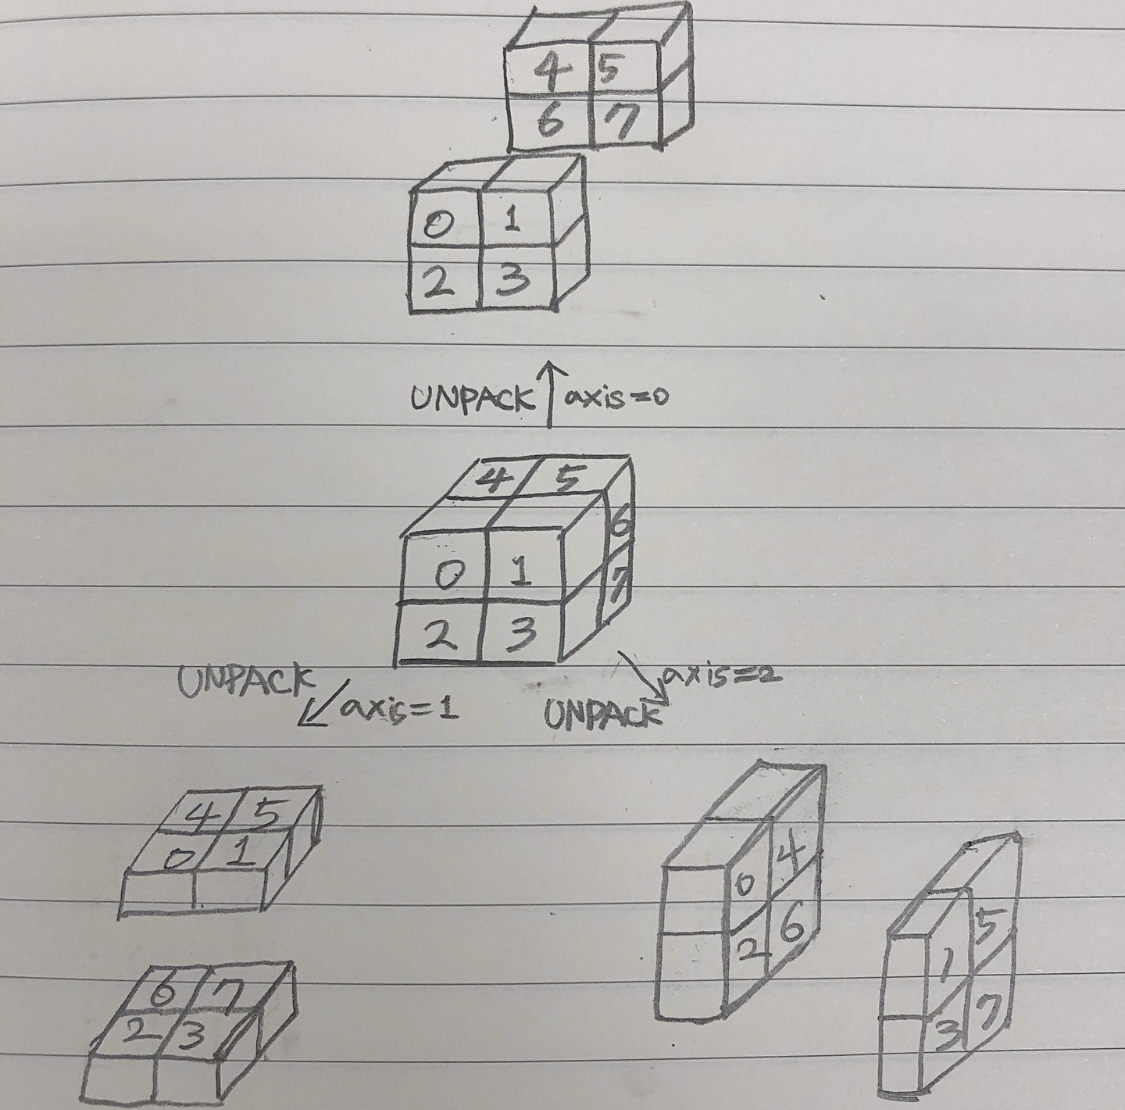 4 5
6 7
0 1
2 3
UNPACK axis=0
4 5
0 1 6
2 3 7
UNPACK axis=1
axis=2 UNPACK
4 5
0 1
6 7
2 3
0 4
2 6
1 5
3 7